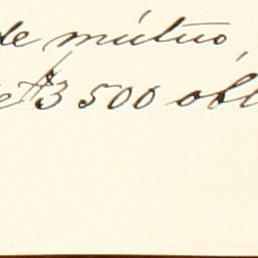 de mútuo,
e $3 500 obl